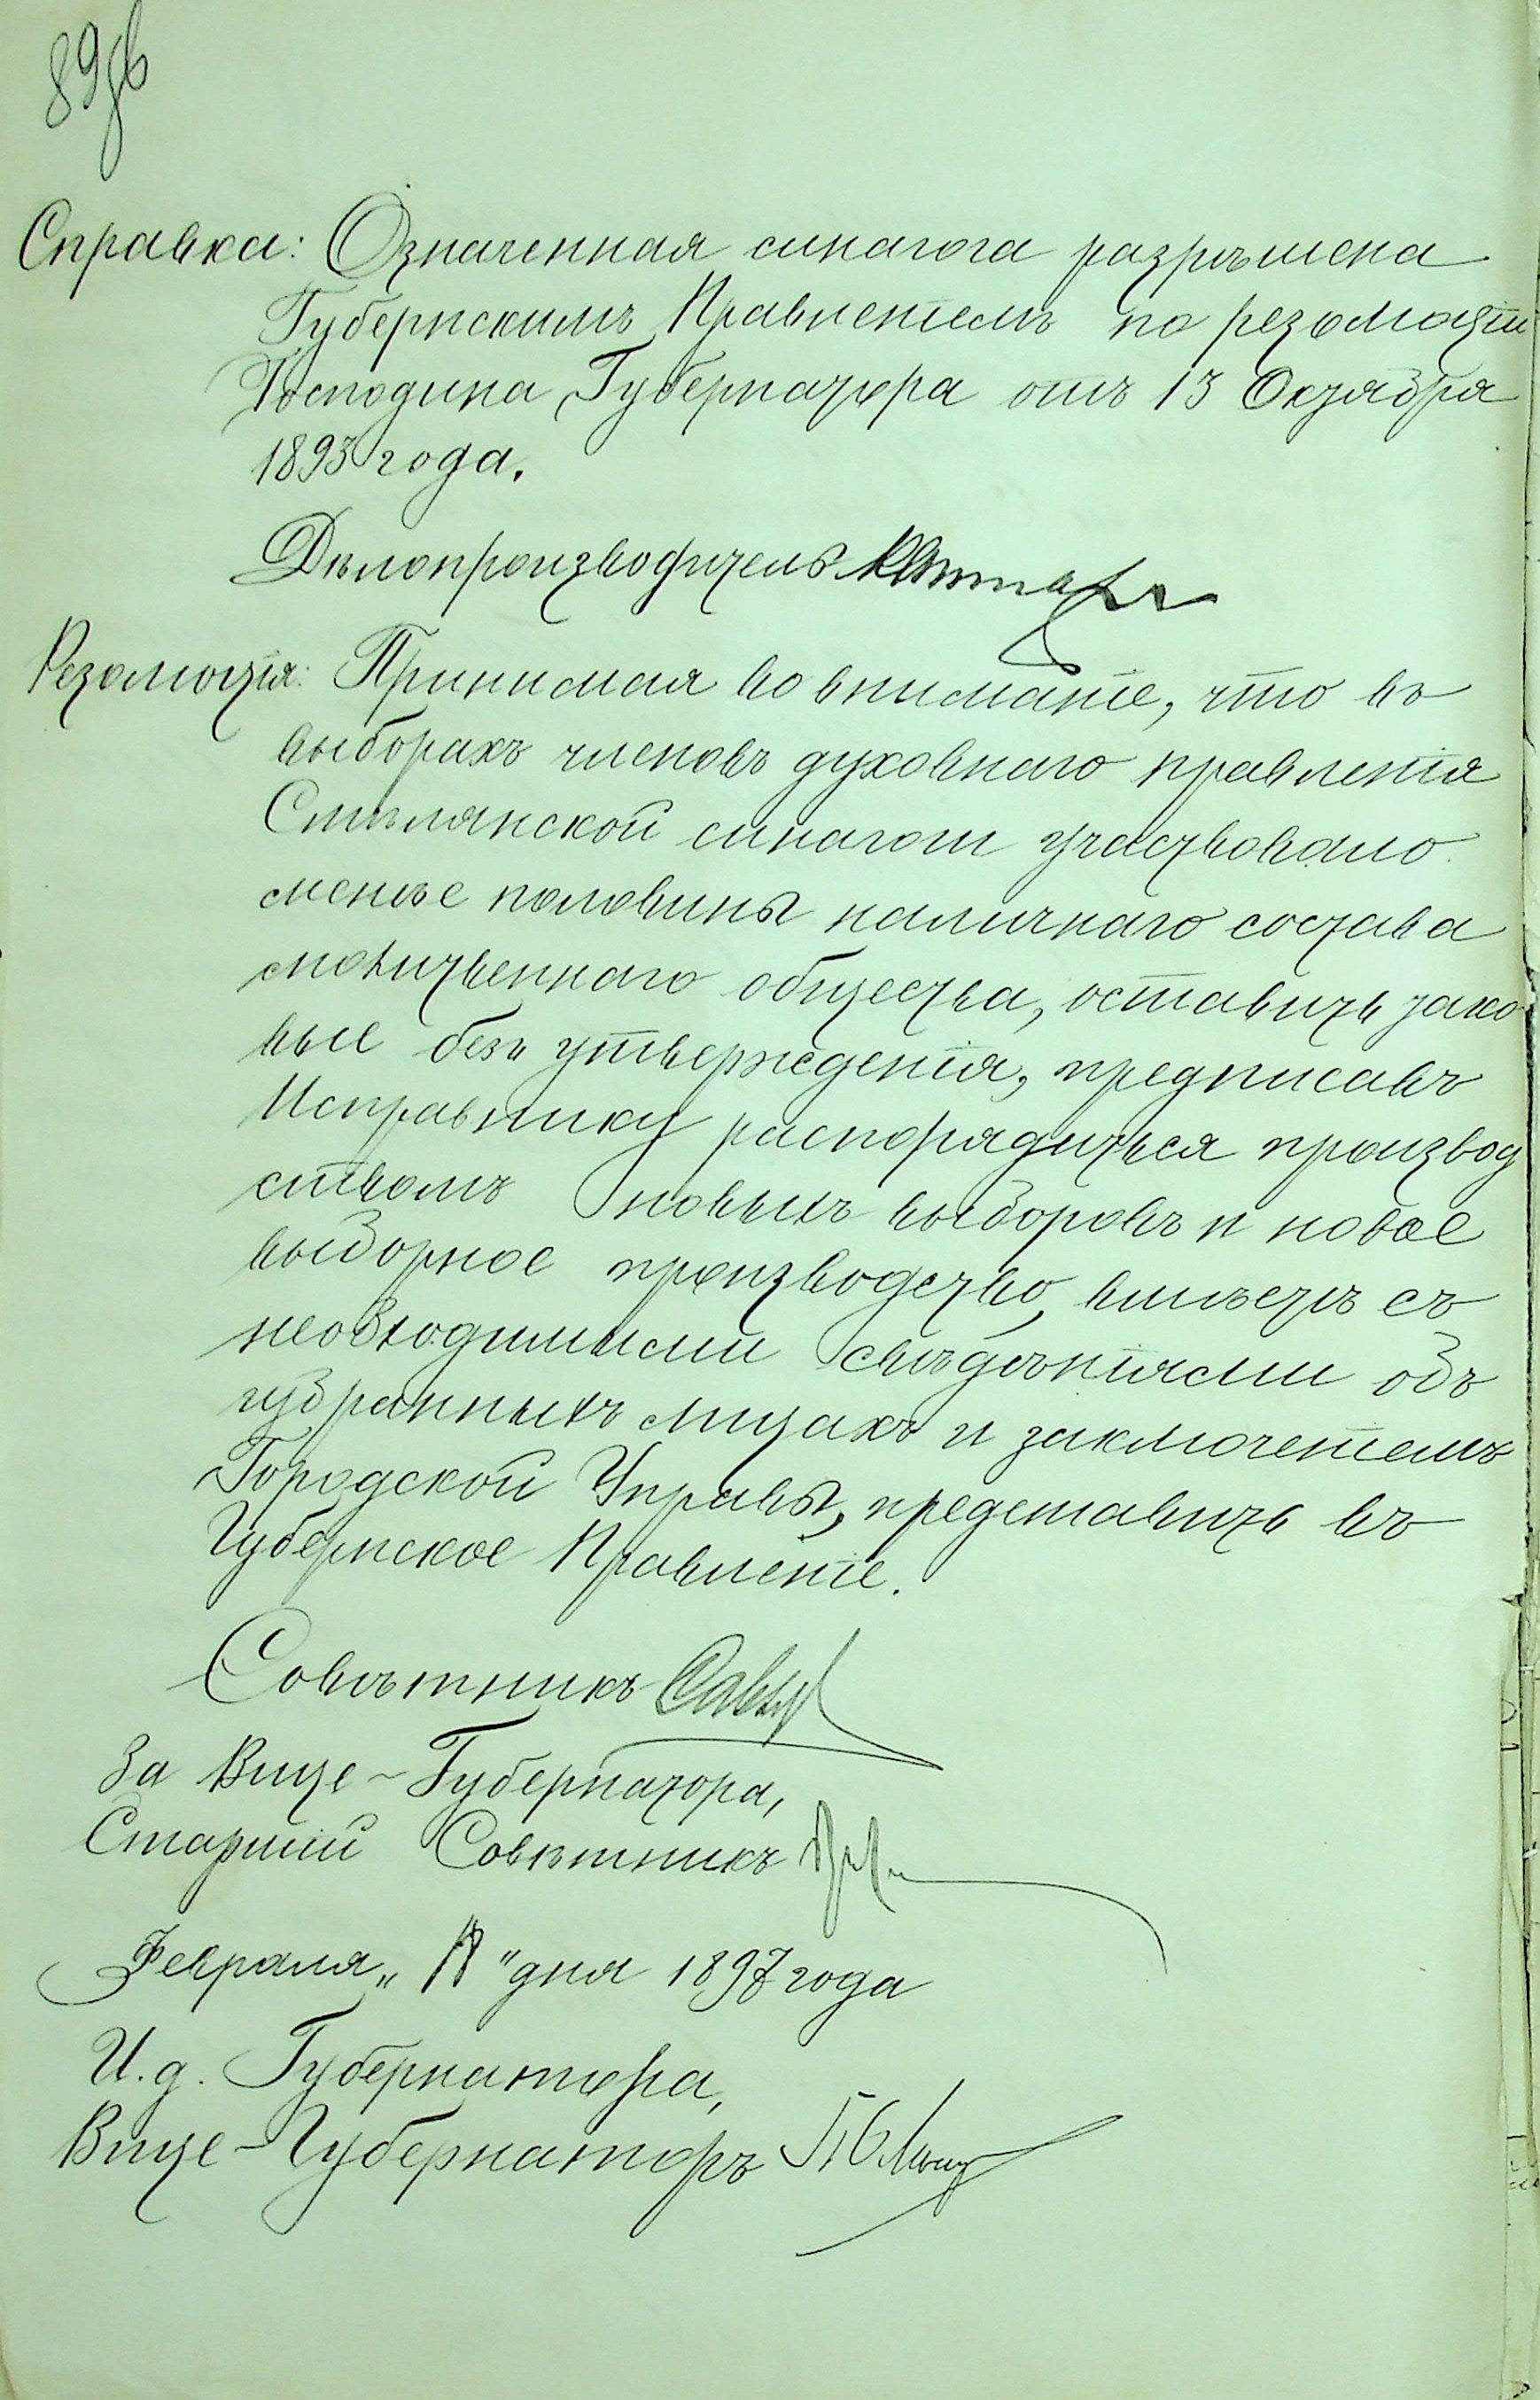 89об
Справка: Означенная синагога разрѣшена
Губернскимъ Правленіемъ по резолюціи
Господина Губернатора отъ 13 Октября
1893 года.
Дѣлопроизводитель
Резолюція: Принимая во вниманіе, что въ
выборахъ членовъ духовнаго правленія
Смѣлянской синагоги участвовало
менѣе половины наличнаго состава
молитвеннаго общества, оставить тако
вые безъ утвержденія, предписавъ
Исправнику распорядиться производ
ствомъ новыхъ выборовъ и новое
выборное производство, вмѣстѣ съ
необходимыми свѣдѣніями объ
избранныхъ лицахъ и заключеніемъ
Городской Управы, представить въ
Губернское Правленіе.
Совѣтникъ
За Вице-Губернатора,
Старшій Совѣтникъ
Февраля „ " дня 1897 года
И. д. Губернатора,
Вице-Губернаторъ